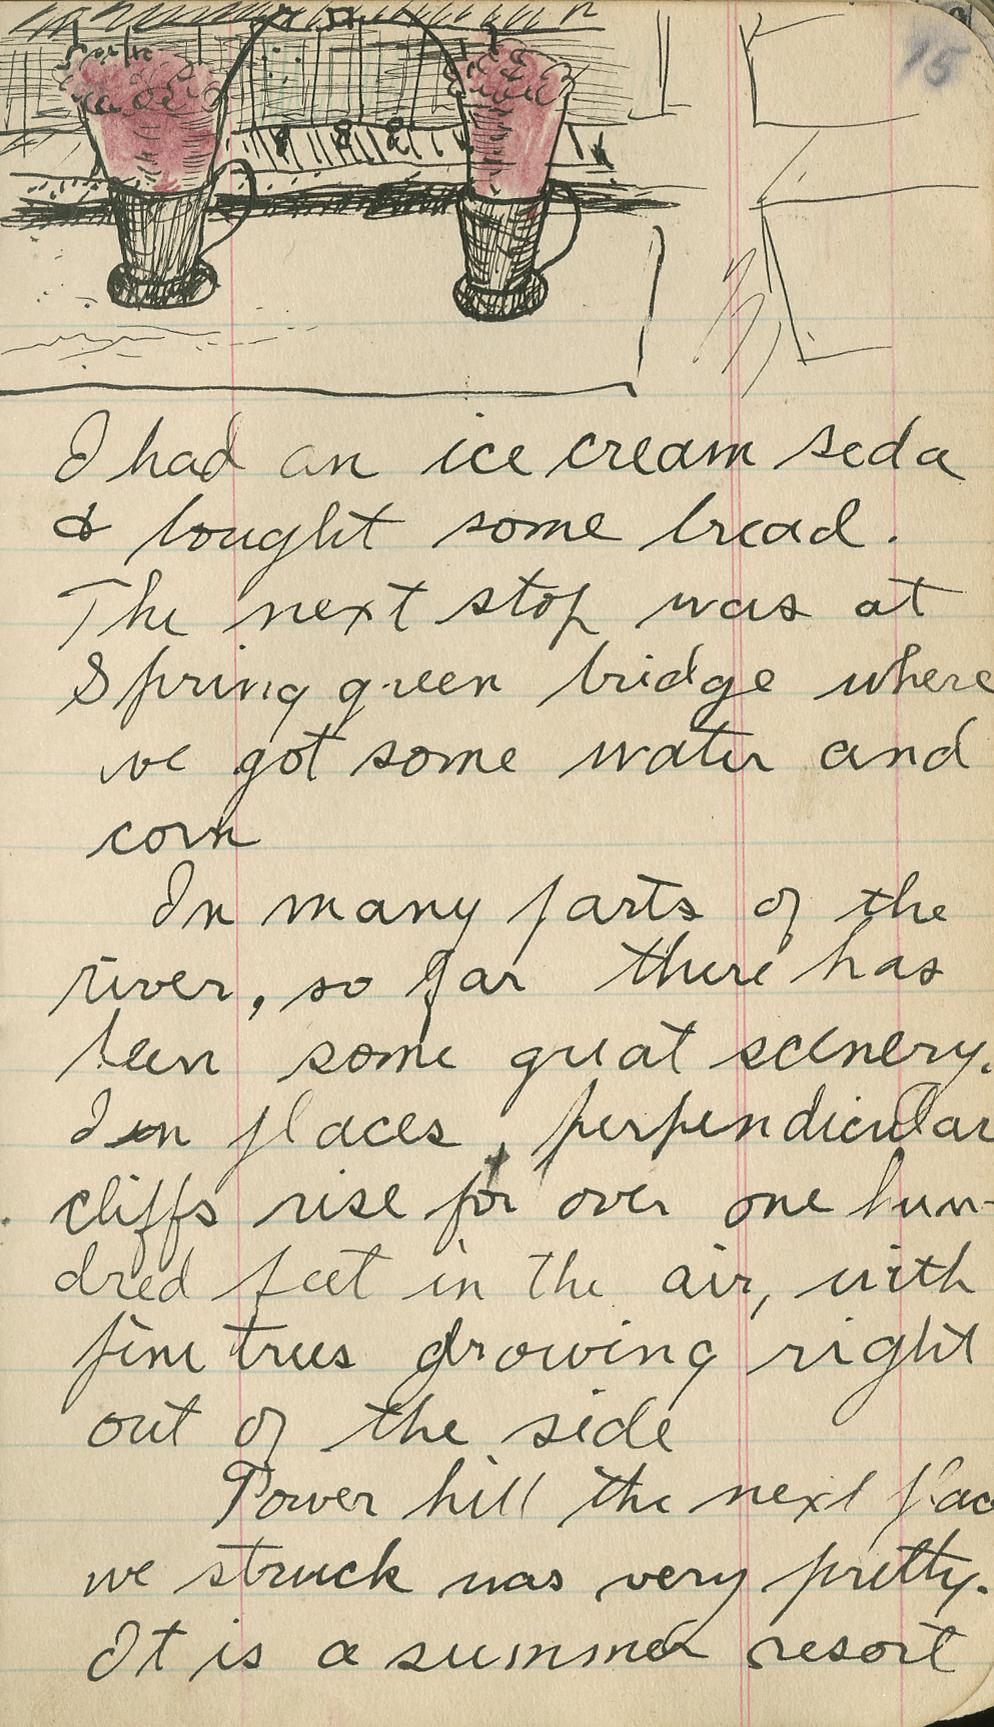 15
I had an ice cream soda
& bought some bread.
The next stop was at
Spring green bridge where
we got some water and
corn
In many parts of the
river, so far there has
been some great scenery.
In places, perpendicular
cliffs rise for over one hun-
dred feet in the air, with
fine trees growing right
out of the side
Tower hill the next plac
we struck was very pretty.
It is a summer resort